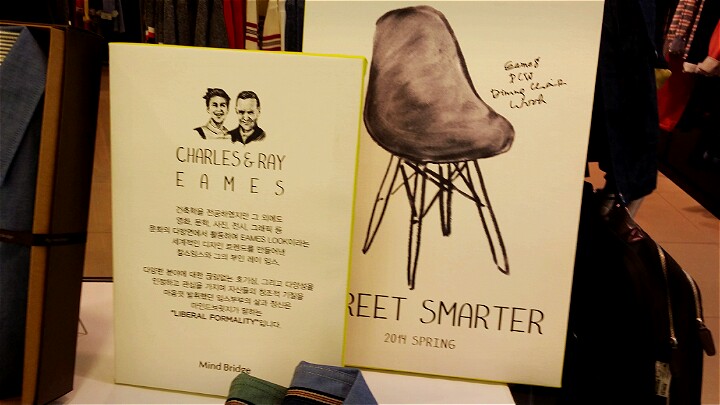 CHARLES & RAY
EAMES
건축학을 전공하였지만 그 외에도
영화, 문학, 사진, 전시, 그래픽 등
문화의 다방면에서 활동하며 EAMES LOOK이라는
세계적인 디자인 트렌드를 만들어낸
찰스임스와 그의 부인 레이 임스.
다양한 분야에 대한 끊임없는 호기심, 그리고 다양성을
인정하고 관심을 가지며 자신들의 창조적 기질을
마음껏 발휘했던 임스부부의 삶과 정신은
마인드브릿지가 말하는
"LIBERAL FORMALITY"입니다.
Mind Bridge
Eames
Dining Chair
REET SMARTER
2014 SPRING